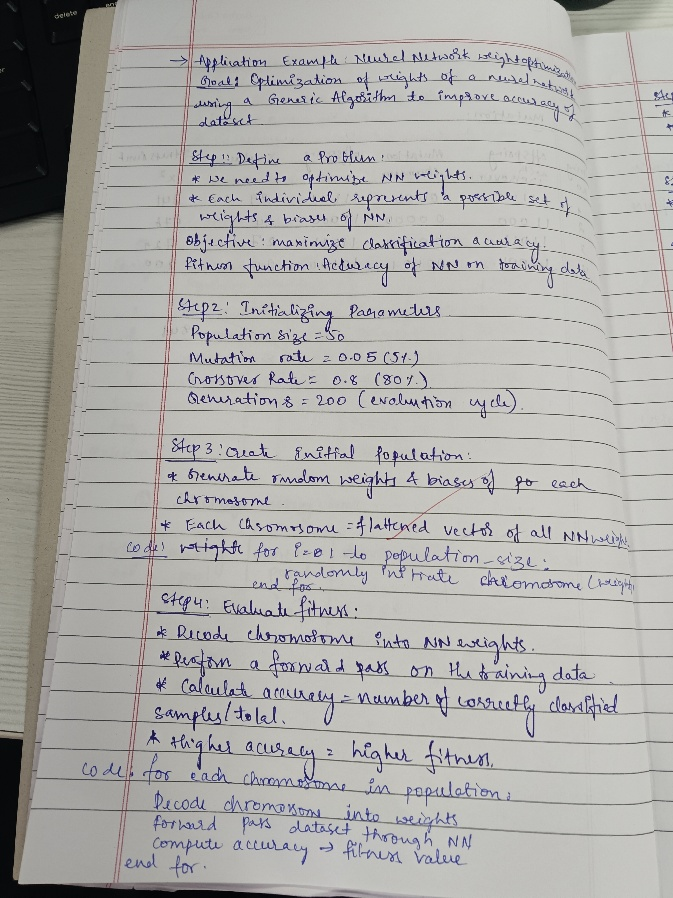 → Application Example: Neural Network weight optimization
Goal: Optimization of weights of a neural network
using a Generic Algorithm to improve accuracy of
dataset
Step 1: Define a Problem:
* We need to optimize NN weights.
* Each individual represents a possible set of
weights & biases of NN.
Objective: maximize classification accuracy.
Fitness function: Accuracy of NN on training data
Step 2: Initializing Parameters
Population size = 50
Mutation rate = 0.05 (5%)
Crossover Rate = 0.8 (80%)
Generations = 200 (evalution cycle).
Step 3: Create initial population:
* Generate random weights & biases of po each
chromosome.
* Each Chromosome = flattened vector of all NN weights
code: weights for i = 0 1 to population_size:
randomly chromosome (weights
end for.
Step 4: Evaluate fitness:
* Decode chromosome into NN weights.
* Perform a forward pass on the training data
* Calculate accuracy = number of correctly classified
samples/total.
* Higher accuracy = higher fitness.
code: for each chromosome in population:
Decode chromosome into weights
forward pass dataset through NN
compute accuracy → fitness value
end for.
delete